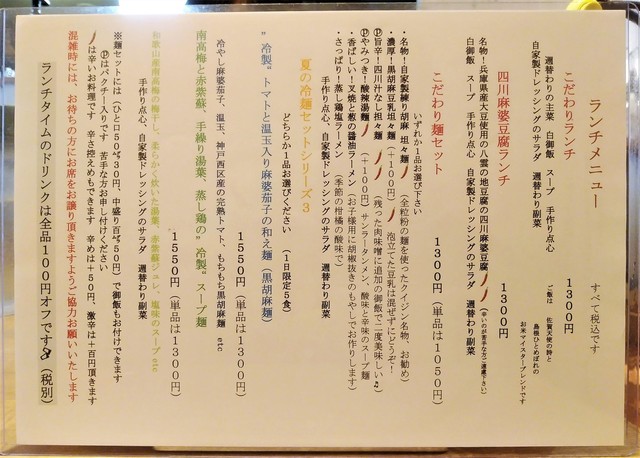 ランチメニュー
すべて税込です
こだわりランチ　1300円
週替わりの主菜　白御飯　スープ　手作り点心
自家製ドレッシングのサラダ　週替わり副菜
ご飯は、佐賀天使の詩と
島根ひとめぼれの
お米マイスターブレンドです
四川麻婆豆腐ランチ　1300円
名物！兵庫県産大豆使用の八雲の地豆腐の四川麻婆豆腐（辛いのが苦手な方ご遠慮下さい）
白御飯　スープ　手作り点心　自家製ドレッシングのサラダ　週替わり副菜
こだわり麺セット　1300円（単品は1050円）
いずれか1品お選び下さい
・名物！自家製練り胡麻　坦々麺（全粒粉の麺を使ったクイジン名物、お勧め）
・濃厚！黒胡麻豆乳坦々麺（＋100円）泡立てた豆乳は混ぜずにどうぞ！
ⓟ旨辛！四川汁なし担々麺（残った肉味噌に追加の御飯で二度美味しい♫）
ⓟやみつき！酸辣湯麺（＋100円）サンラータンメン、酸味と辛味のスープ麺
・香ばしい！叉焼と葱の醤油ラーメン（お子様用に胡椒抜きのもやしでお作りします）
・さっぱり！蒸し鶏塩ラーメン　（季節の柑橘の酸味で）
手作り点心、自家製ドレッシングのサラダ　週替わり副菜
夏の冷麺セットシリーズ3
どちらか1品お選びください　（1日限定5食）
”冷製”トマトと温玉入り麻婆茄子の和え麺（黒胡麻麺）
1550円（単品は1300円）
冷やし麻婆茄子、温玉、神戸西区産の完熟トマト、もちもち黒胡麻麺　etc
南高梅と赤紫蘇、手繰り湯葉、蒸し鶏の”冷製”スープ麺
1550円（単品は1300円）
和歌山産南高梅の梅干し、柔らかく炊いた湯葉、赤紫蘇ジュレ、塩味のスープetc
手作り点心、自家製ドレッシングのサラダ　週替わり副菜
※麺セットには（ひと口50㌘30円、中盛り百㌘50円）で御飯もお付けできます
ⓟはパクチー入りです　苦手な方お申し付けください
は辛いお料理です　辛さ控えめもできます　辛めは＋50円、激辛は＋百円頂きます
混雑時には、お待ちの方にお席をお譲り頂きますようご協力お願いいたします
ランチタイムのドリンクは全品100円オフです（税別）